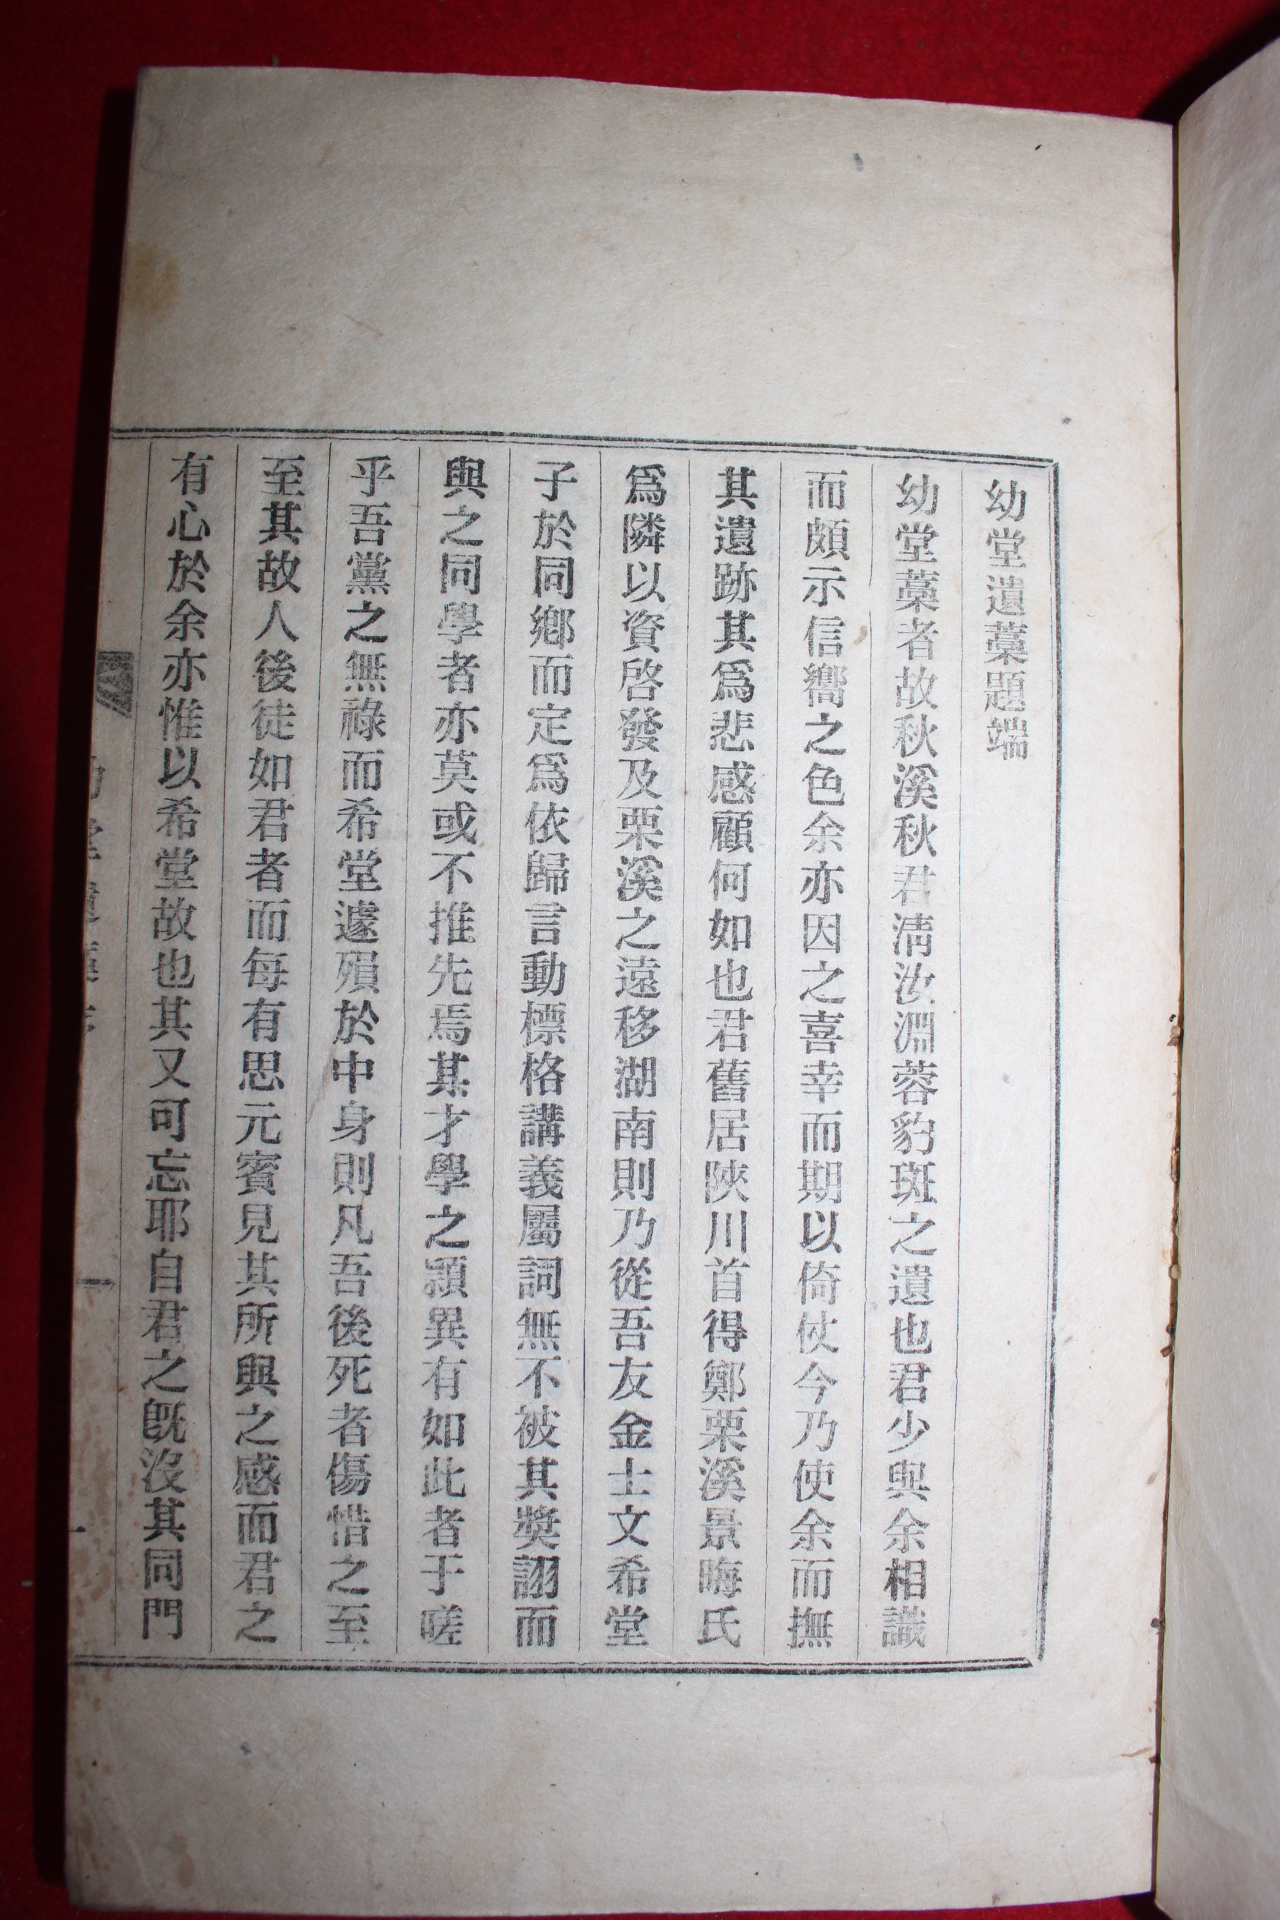 幼堂遺藁題端
幼堂藁者故秋溪秋君淸汝淵蓉豹斑之遺也君少與余相識
而頗示信嚮之色余亦因之喜幸而期以倚仗今乃使余而撫
其遺跡其爲悲感顧何如也君舊居陜川首得鄭栗溪景晦氏
爲隣以資啓發及栗溪之遠移湖南則乃從吾友金士文希堂
子於同鄕而定爲依歸言動標格講義屬詞無不被其奬詡而
與之同學者亦莫或不推先焉其才學之頴異有如此者于嗟
乎吾黨之無祿而希堂遽殞於中身則凡吾後死者傷惜之至
至其故人後徒如君者而每有思元賓見其所與之感而君之
有心於余亦惟以希堂故也其又可忘耶自君之旣沒其同門
幼堂遺藁序
一